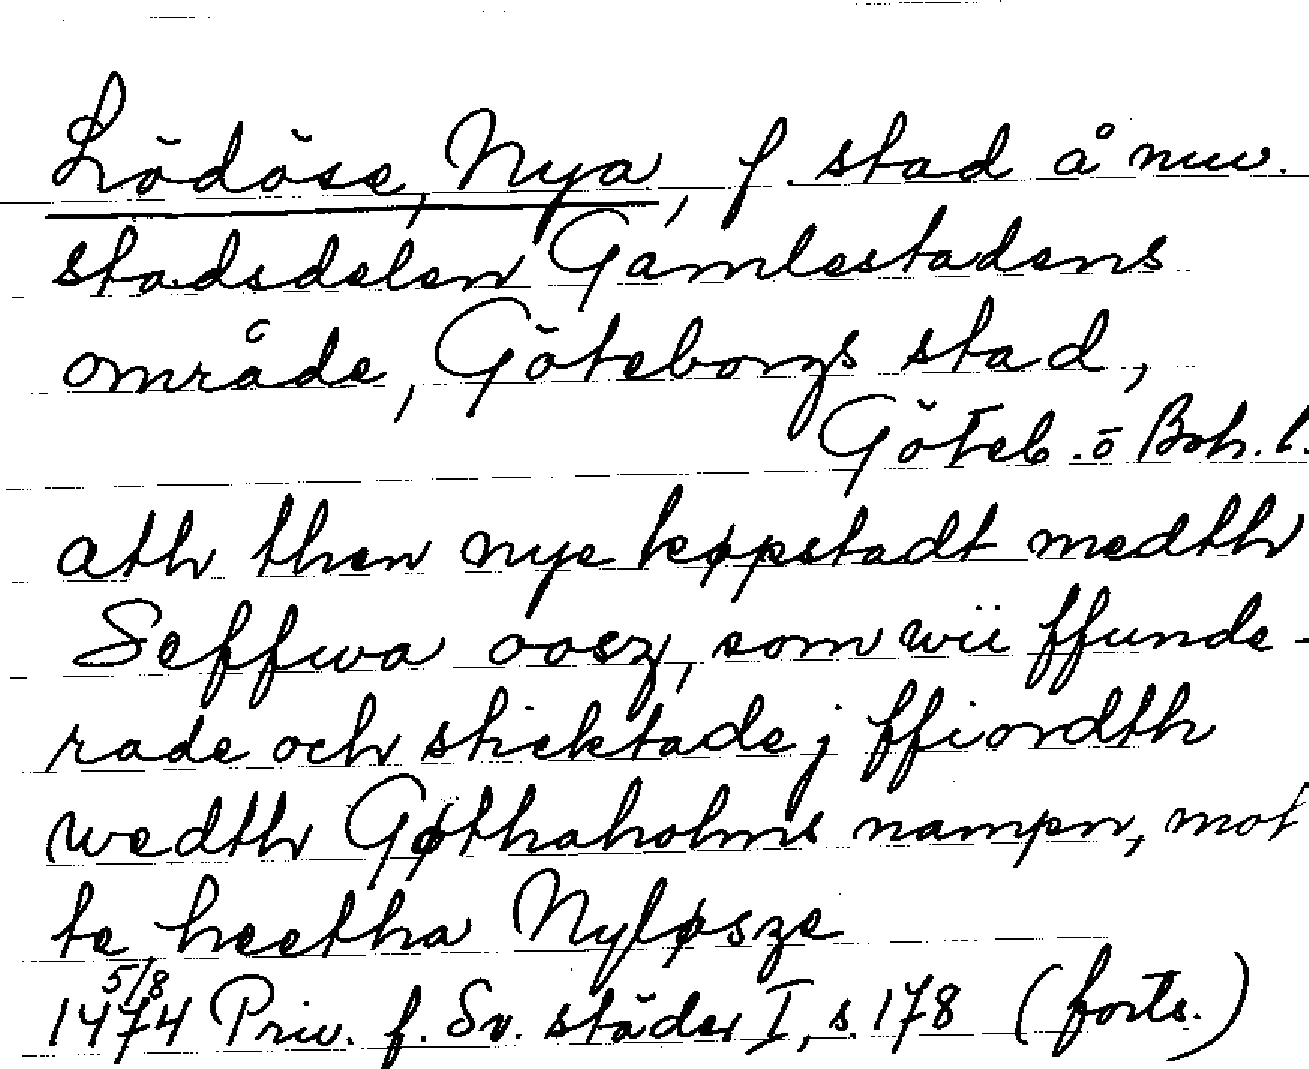 Lödöse, Nya, f. stad å nuv.
stadsdelen Gamlestadens
område, Göteborgs stad,
Göteb. o Boh. l.
ath then nye køpstadt medth
Seffwa oosz, som wii ffunde-
rade och sticktade j ffiordth
wedth Gøthaholms nampn, mot
te heetha Nyløsze
5/8
1474 Priv. f. Sv. städer I, s. 178 (forts.)